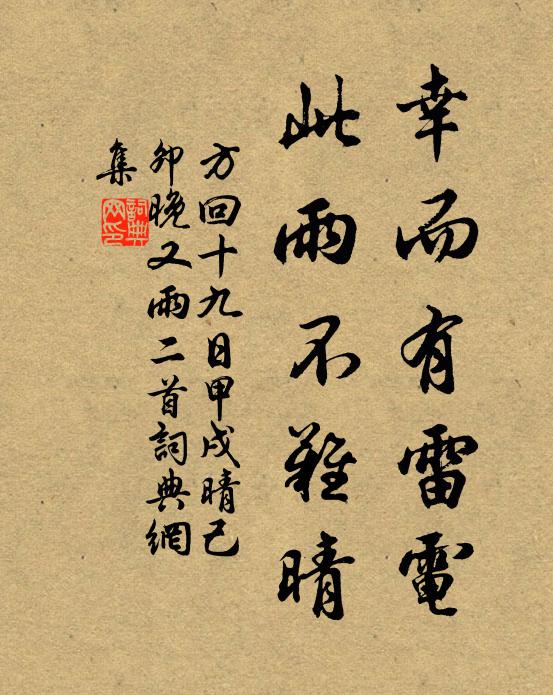 幸而有雷電
此雨不難晴
方回十九日甲戌晴己
卯晚又雨二首詞典網
集
詞典
网印